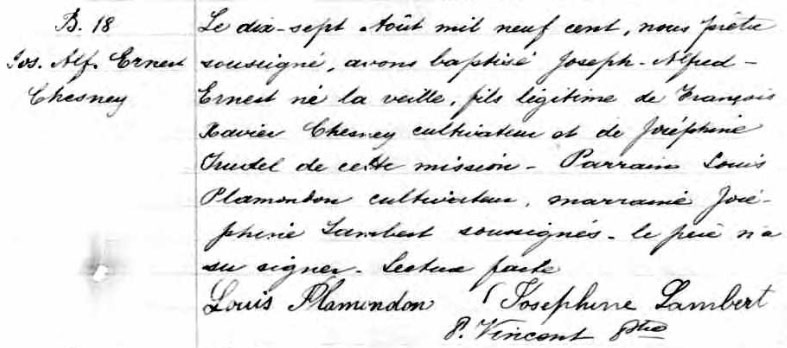 B. 18
Jos. Alf. Ernest
Chesney
Le dix-sept Août mil neuf cent, nous prêtre
soussigné, avons baptisé Joseph-Alfred-
Ernest né la veille, fils légitime de François
Xavier Chesney cultivateur et de Joséphine
Trudel de cette mission - Parrain Louis
Plamondon cultivateur, marraine José-
phine Lambert soussignés - le père n'a
su signer - Lecture faite
Louis Plamondon Josephine Lambert
P. Vincent Ptre